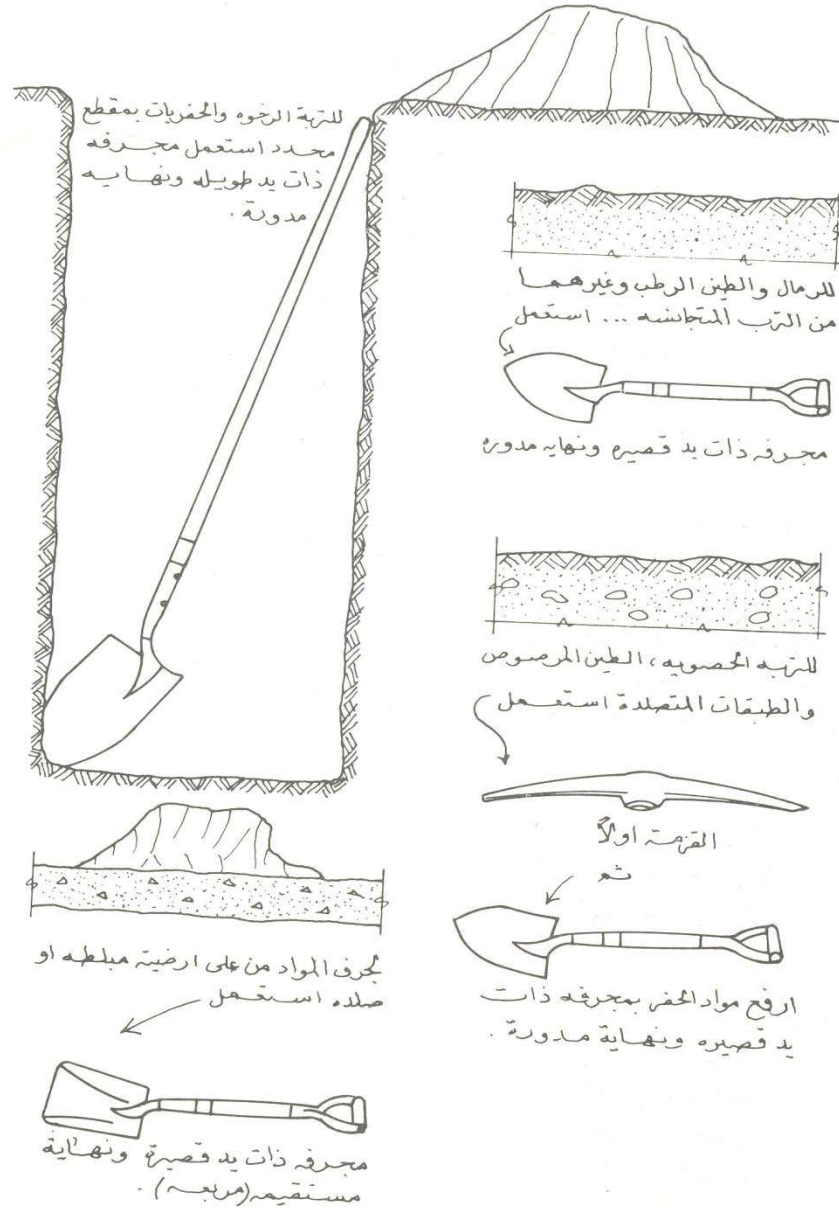 للتربة الرخوه والحفريات بمقطع
محدد استعمل مجرفه
ذات يد طويله ونهايه
مدورة .
للرمال والطين الرطب وغيرهما
من الترب المتجانسه ... استعمل
مجرفه ذات يد قصيره ونهايه مدوره
للتربه الحصويه، الطين المرصوص
والطبقات المتصلدة استعمل
القزمة اولاً
ثم
ارفع مواد الحفر بمجرفه ذات
يد قصيره ونهاية مدورة .
لجرف المواد من على ارضية مبلطه او
صلده استعمل
مجرفه ذات يد قصيرة ونهاية
مستقيمه (مربعه) .